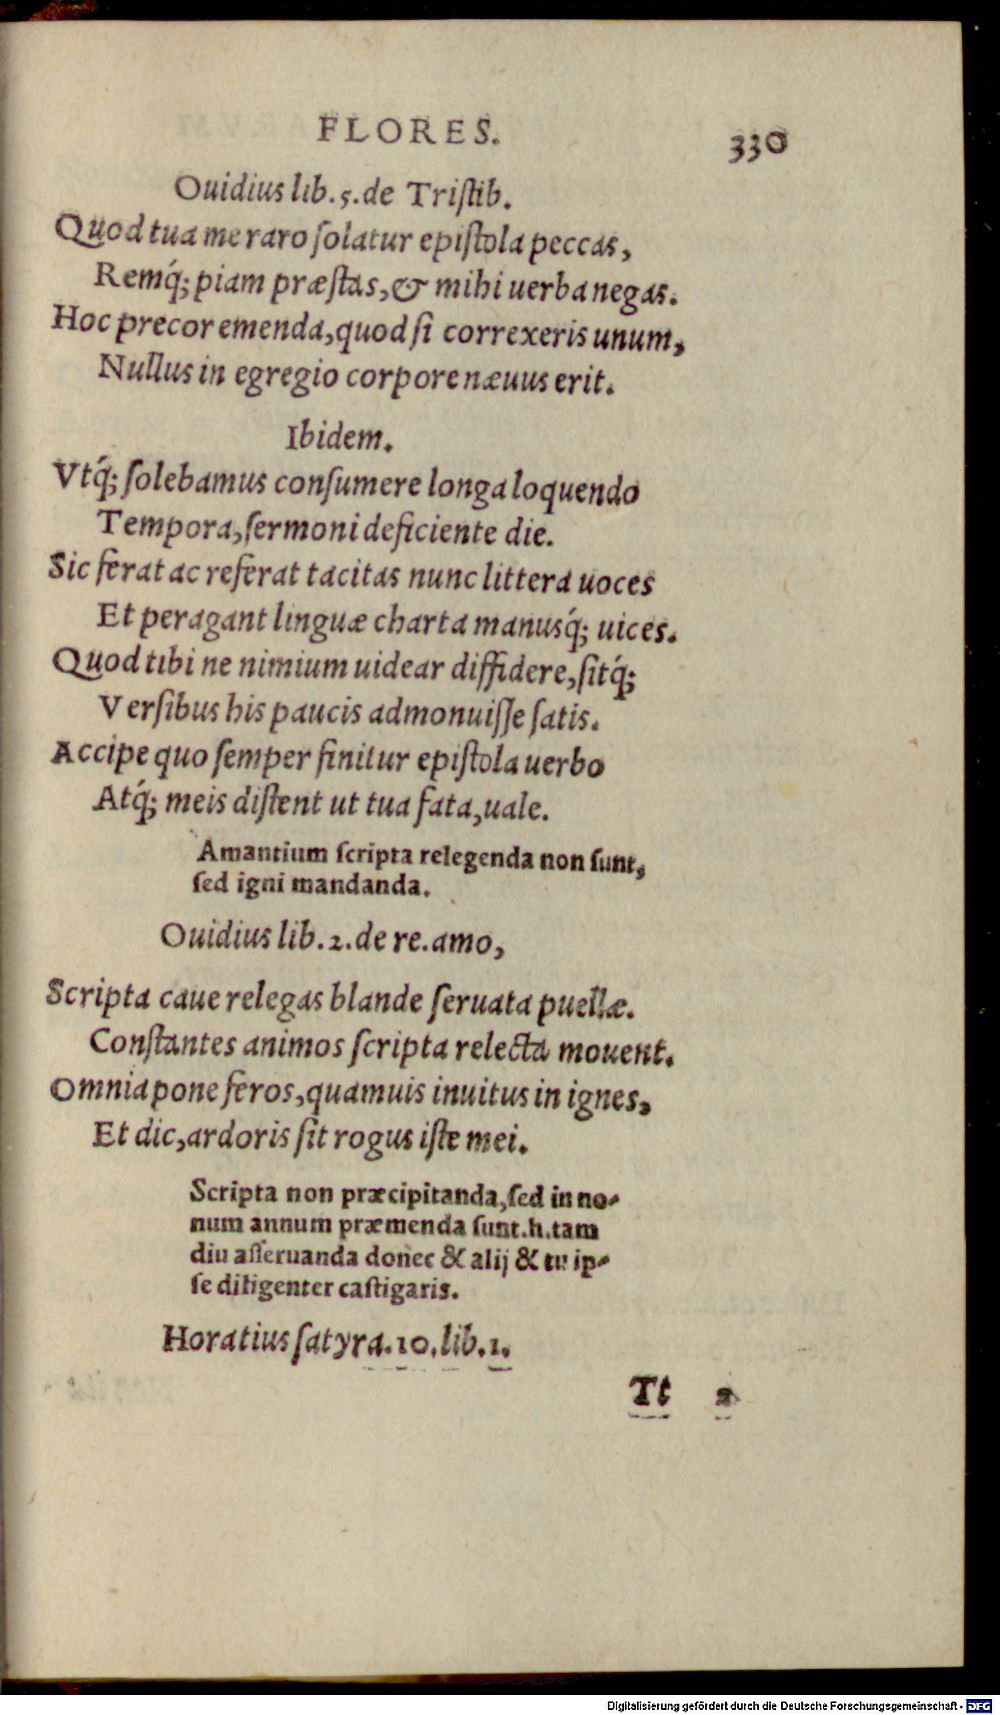 FLORES.
330
Ouidius lib.5.de Tristib.
Quod tua me raro solatur epistola peccas,
Remq́; piam præstas,& mihi uerba negas.
Hoc precor emenda,quod si correxeris unum,
Nullus in egregio corpore næuus erit.
Ibidem.
Vtq́; solebamus consumere longa loquendo
Tempora,sermoni deficiente die.
Sic ferat ac referat tacitas nunc littera uoces
Et peragant linguæ charta manusq́; uices.
Quod tibi ne nimium uidear diffidere,sitq́;
Versibus his paucis admonuisse satis.
Accipe quo semper finitur epistola uerbo
Atq́; meis distent ut tua fata,uale.
Amantium scripta relegenda non sunt,
sed igni mandanda.
Ouidius lib.2.de re.amo,
Scripta caue relegas blande seruata puellæ.
Constantes animos scripta relecta mouent.
Omnia pone feros,quamuis inuitus in ignes,
Et dic,ardoris sit rogus iste mei.
Scripta non præcipitanda,sed in no-
num annum præmenda sunt.h.tam
diu asseruanda donec & alij & tu ip-
se diligenter castigaris.
Horatius satyra.10.lib.1.
Tt 2
Digitalisierung gefördert durch die Deutsche Forschungsgemeinschaft - DFG